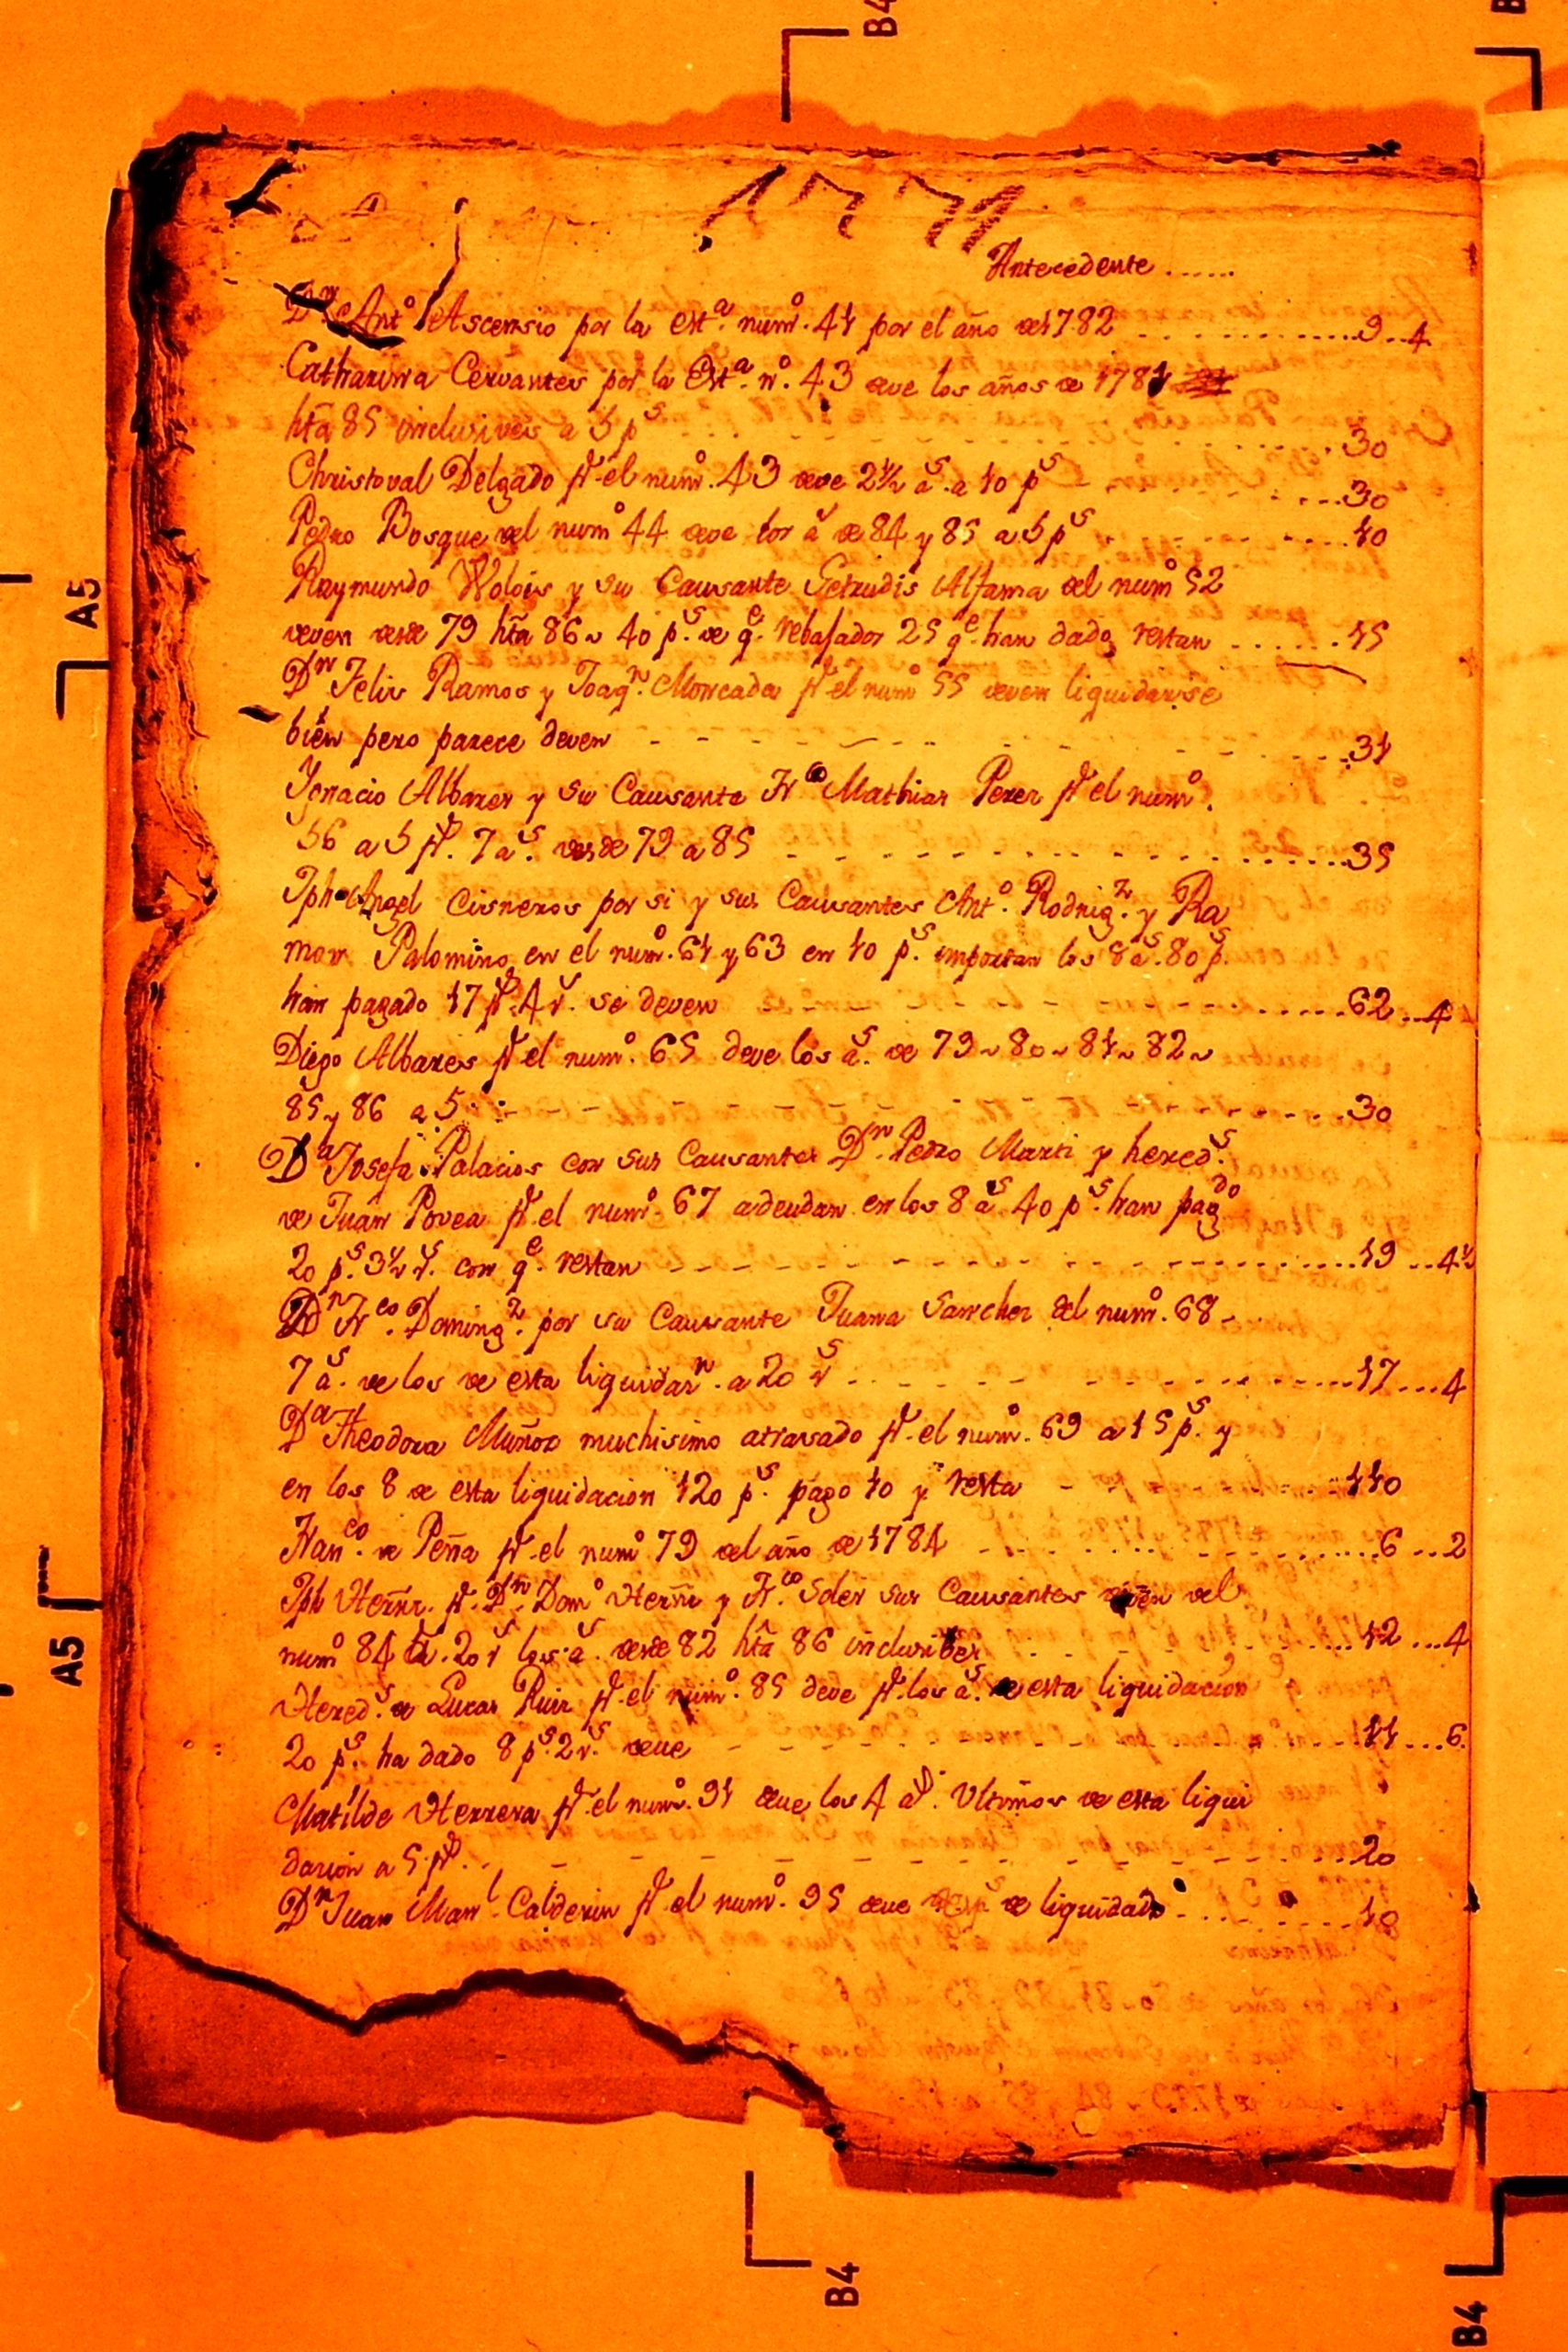 B4
1771
Antecedente ......
Dn Anto Ascensio por la esta. numo. 41 por el año de 1782 ........ 9..4
Catharina Cervantes por la Esta. no. 43 deve los años de 1781
hta 85 inclusives a 5 ps ........ 30
Christoval Delgado pr el numo. 43 deve 2 1/2 as. a 10 ps ........ 30
Pedro Bosque del numo 44 deve los as de 84 y 85 a 5 ps ........ 10
Raymundo y su Causante Getrudis Alfama del numo 52
deven desde 79 hta 86 ~ 40 ps. de qe. rebajados 25 qe han dado restan ...... 15
Dn Felis Ramos y Joaqn. Moncada pr el numo 55 deven liquidarse
bien pero parece deven ........ 31
Ygnacio Albarez y su Causante Frco Mathias Perez pr el numo.
56 a 5 ps. 7 as. desde 79 a 85 ........ 35
Jph Angel Cisneros por si y sus Causantes Anto. Rodrigz. y Ra
mon Palomino en el numo. 61 y 63 en 10 ps. importan los 8 as. 80 ps.
han pagado 17 ps. 4 rs. se deven ........ 62..4
Diego Albares pr el numo. 65 deve los as. de 79 ~ 80 ~ 81 ~ 82 ~
85 y 86 a 5 ........ 30
Da Josefa Palacios con sus Causantes Dn. Pedro Marti y hereds.
de Juan Povea pr el numo. 67 adeudan en los 8 as 40 ps. han pagdo
20 ps. 3 1/2 rs. con qe. restan ........ 19 ..4 1/2
Dn Frco. Domingz. por su Causante Juana Sanchez del numo. 68
7 as. de los de esta liquidan. a 20 rs ........ 17 ...4
Da Theodora Muñoz muchisimo atrasado pr el numo. 69 a 15 ps. y
en los 8 de esta liquidacion 120 ps. pago 10 y resta ........ 110
Franco. de Peña pr el numo 79 del año de 1784 ........ 6 ...2
Jph Hernz. pr Dn Domo Hernz y Frco Soler sus Causantes deven del
numo 84 a 20 rs los as. desde 82 hta 86 inclusibes ........ 12 ...4
Hereds. de Lucas Ruiz pr el numo. 85 deve pr los as. de esta liquidacion
20 ps. ha dado 8 ps. 2 rs. deve ........ 11 ...6
Matilde Herrera pr el numo. 91 deve los 4 as. Ultimos de esta liqui
dacion a 5 ps. ........ 20
Dn Juan Manl. Calderin pr el numo. 95 deve de liquidado ........ 18
A5
A5
B4
B4